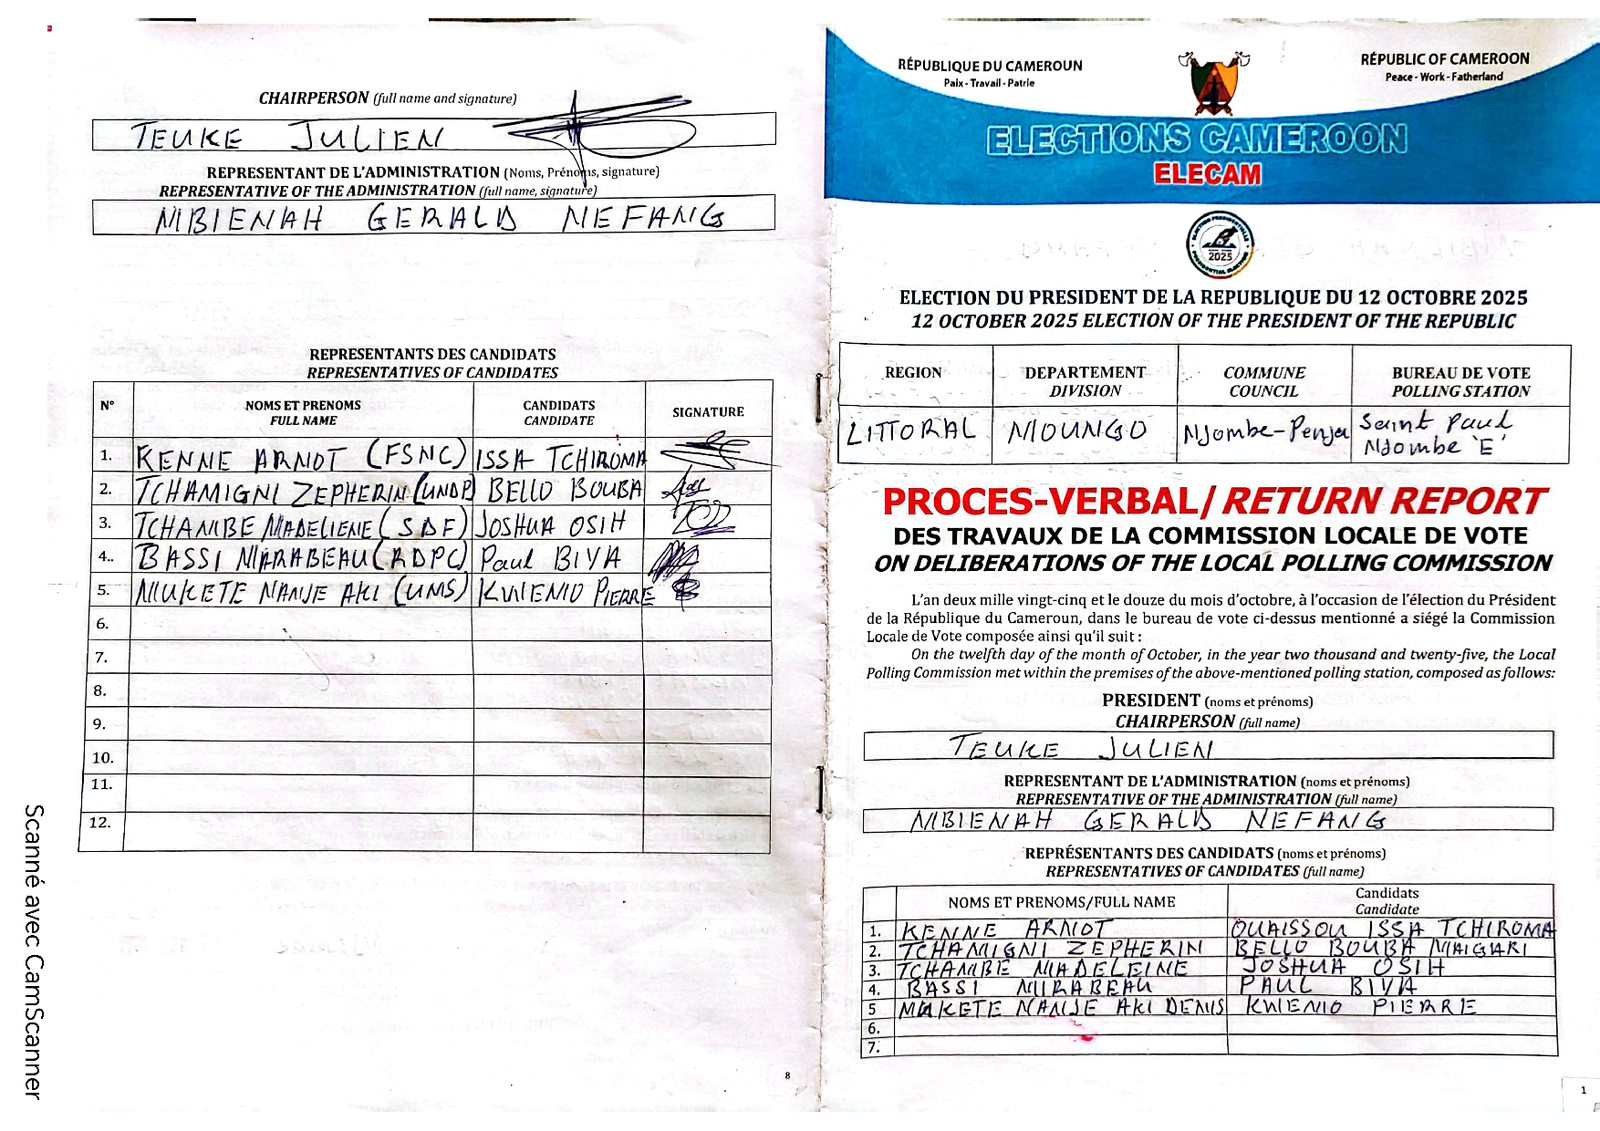 CHAIRPERSON (full name and signature)
TEUKE JULIEN
REPRESENTANT DE L'ADMINISTRATION (Noms, Prénoms, signature)
REPRESENTATIVE OF THE ADMINISTRATION (full name, signature)
MBIENAH GERALD NEFANG
REPRESENTANTS DES CANDIDATS
REPRESENTATIVES OF CANDIDATES
N° NOMS ET PRENOMS FULL NAME CANDIDATS CANDIDATE SIGNATURE
1. KENNE ARNOT (FSNC) ISSA TCHIROMA
2. TCHAMIGNI ZEPHERIN (UNDP) BELLO BOUBA
3. TCHAMBE MADELIENE (SDF) JOSHUA OSIH
4.. BASSI MARABEAU (RDPC) Paul BIYA
5. MUKETE NANJE AKI (UMS) KWEMO PIERRE
6.
7.
8.
9.
10.
11.
12.
8
Scanné avec CamScanner
RÉPUBLIQUE DU CAMEROUN
Paix - Travail - Patrie
RÉPUBLIC OF CAMEROON
Peace - Work - Fatherland
ELECTIONS CAMEROON
ELECAM
ELECTION PRESIDENTIELLE
2025
PRESIDENTIAL ELECTION
ELECTION DU PRESIDENT DE LA REPUBLIQUE DU 12 OCTOBRE 2025
12 OCTOBER 2025 ELECTION OF THE PRESIDENT OF THE REPUBLIC
REGION DEPARTEMENT DIVISION COMMUNE COUNCIL BUREAU DE VOTE POLLING STATION
LITTORAL MOUNGO Njombe-Penja Saint Paul
Njombe 'E'
PROCES-VERBAL/ RETURN REPORT
DES TRAVAUX DE LA COMMISSION LOCALE DE VOTE
ON DELIBERATIONS OF THE LOCAL POLLING COMMISSION
L'an deux mille vingt-cinq et le douze du mois d'octobre, à l'occasion de l'élection du Président
de la République du Cameroun, dans le bureau de vote ci-dessus mentionné a siégé la Commission
Locale de Vote composée ainsi qu'il suit :
On the twelfth day of the month of October, in the year two thousand and twenty-five, the Local
Polling Commission met within the premises of the above-mentioned polling station, composed as follows:
PRESIDENT (noms et prénoms)
CHAIRPERSON (full name)
TEUKE JULIEN
REPRESENTANT DE L'ADMINISTRATION (noms et prénoms)
REPRESENTATIVE OF THE ADMINISTRATION (full name)
MBIENAH GERALD NEFANG
REPRÉSENTANTS DES CANDIDATS (noms et prénoms)
REPRESENTATIVES OF CANDIDATES (full name)
NOMS ET PRENOMS/FULL NAME Candidats Candidate
1. KENNE ARNOT OUAISSOU ISSA TCHIROMA
2. TCHAMIGNI ZEPHERIN BELLO BOUBA MAIGARI
3. TCHAMBE MADELEINE JOSHUA OSIH
4. BASSI MIRABEAU PAUL BIYA
5 MUKETE NANJE AKI DENIS KWEMO PIERRE
6.
7.
1